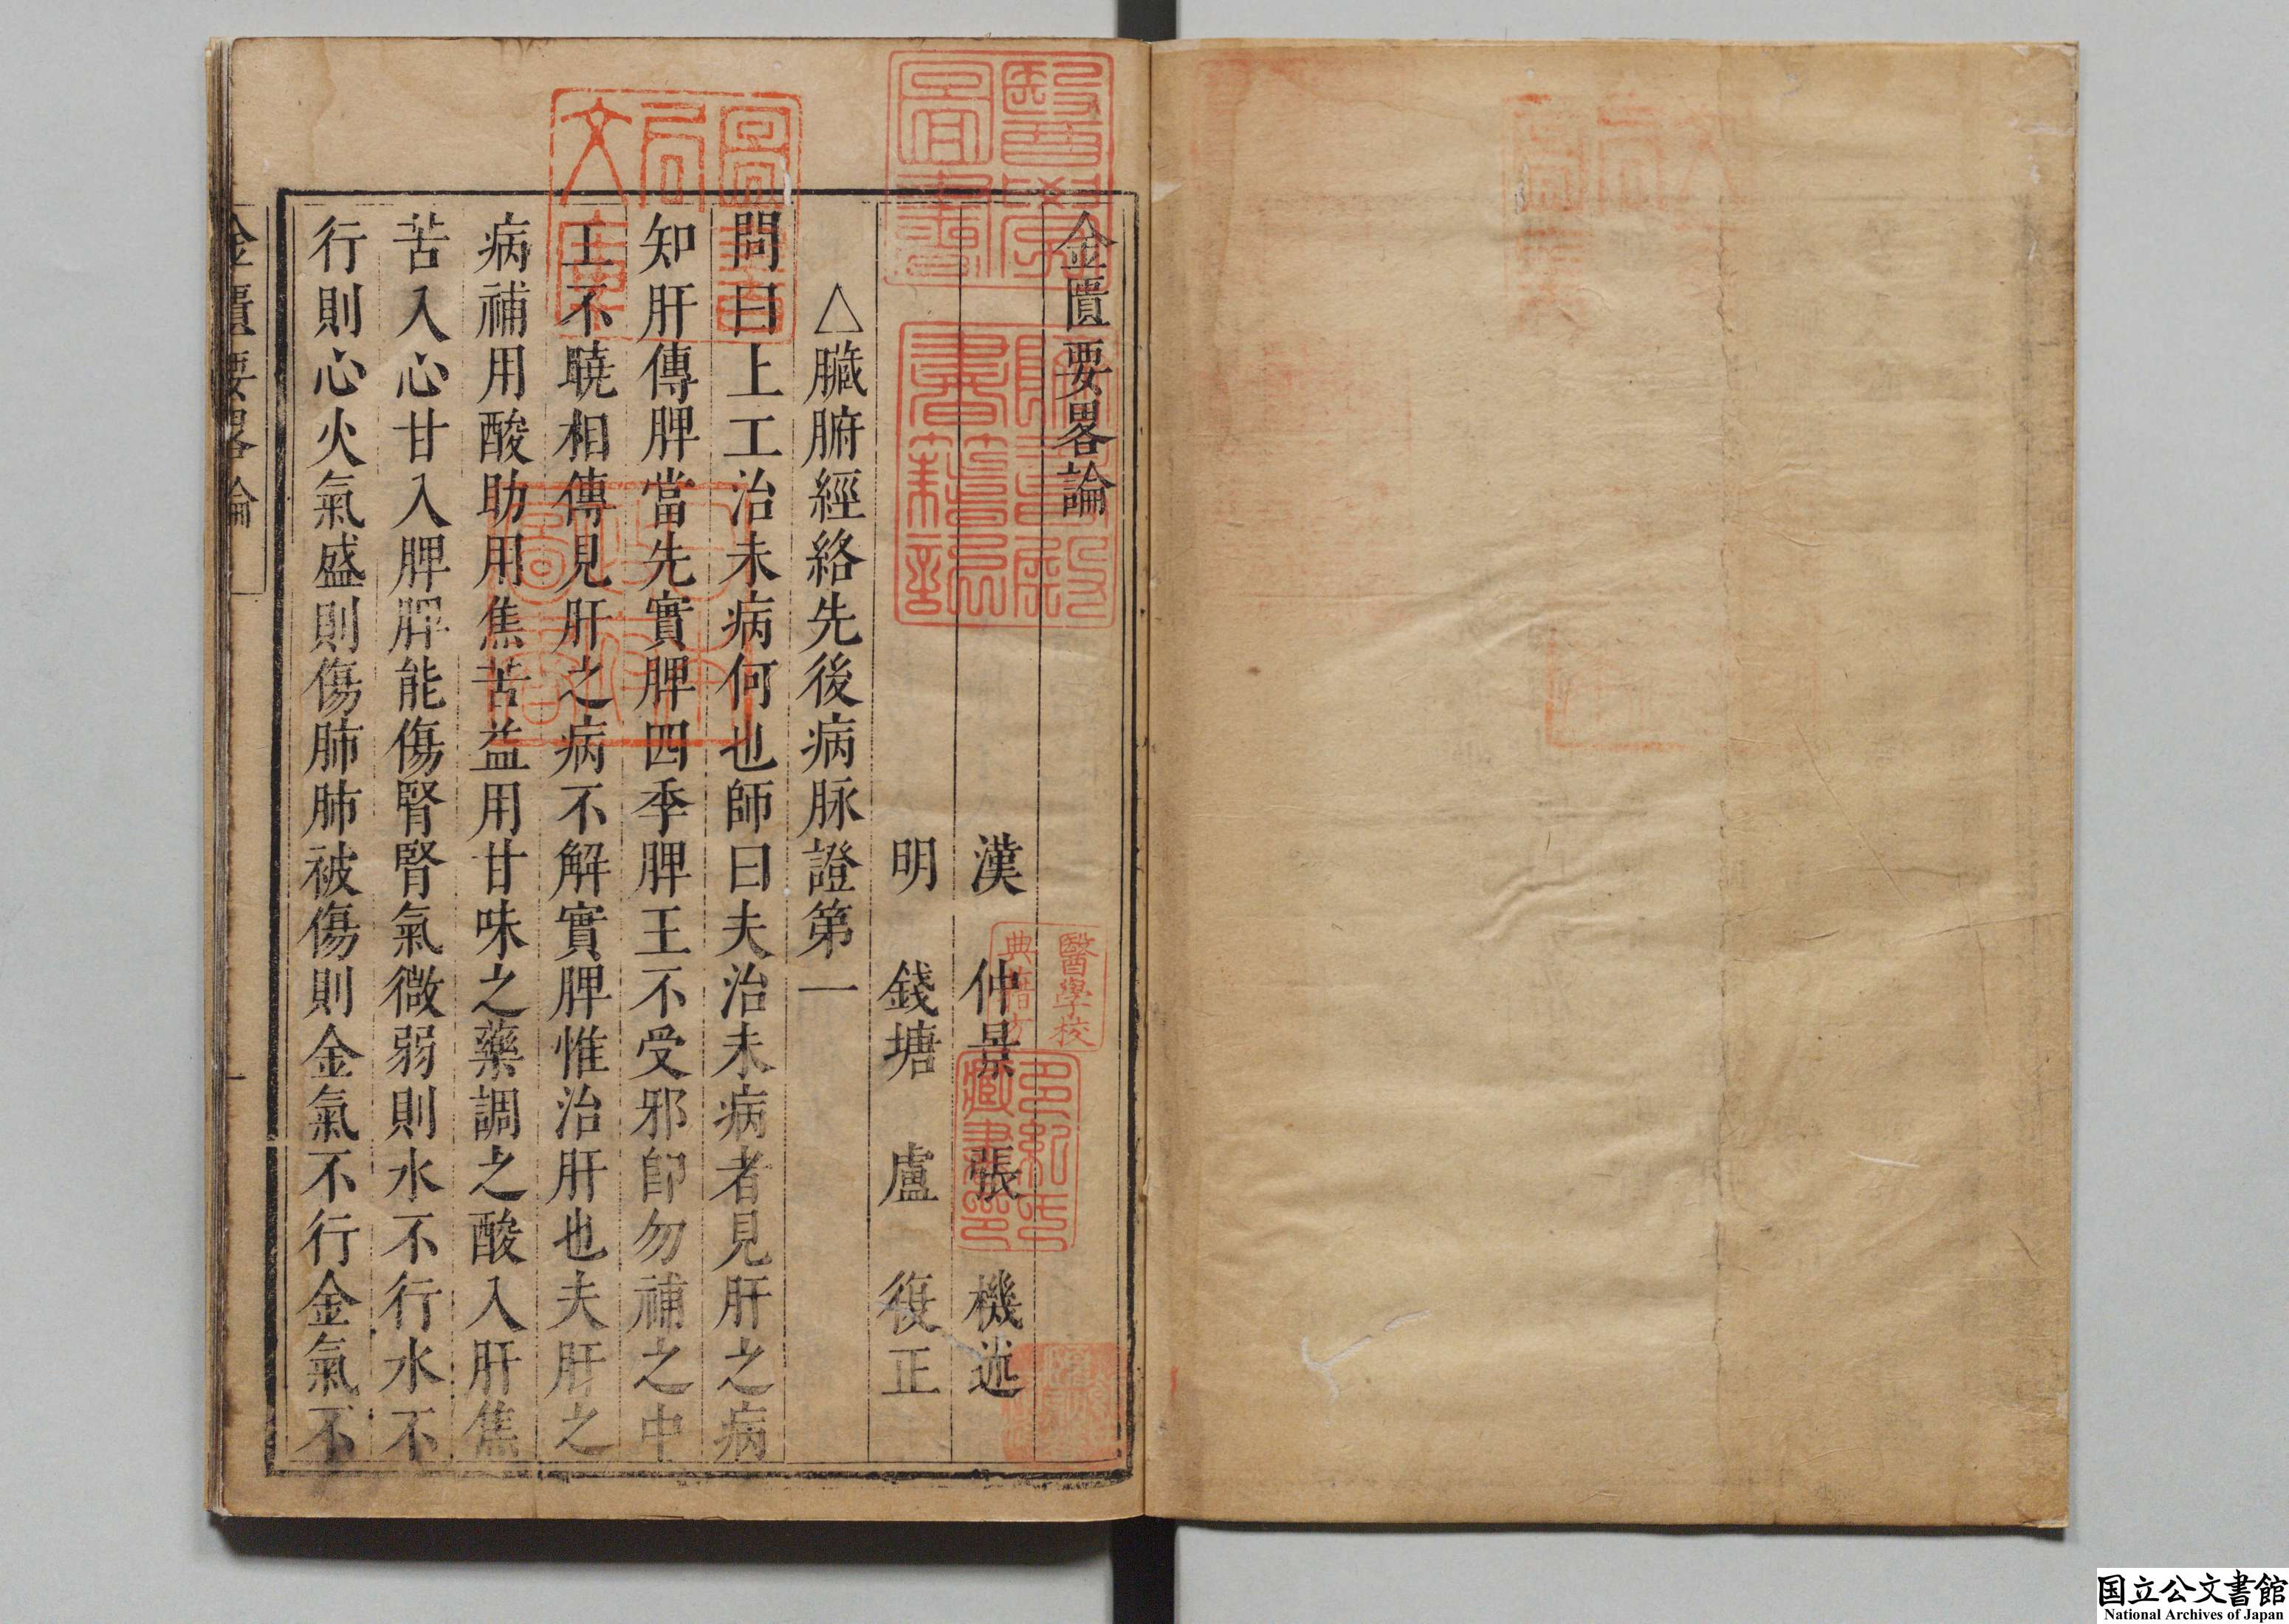 金匱要畧論
漢 仲景 張 機 述
明 錢塘 盧 復 正
△臟腑經絡先後病脉證第一
問曰上工治未病何也師曰夫治未病者見肝之病
知肝傳脾當先實脾四季脾王不受邪卽勿補之中
工不曉相傳見肝之病不解實脾惟治肝也夫肝之
病補用酸助用焦苦益用甘味之藥調之酸入肝焦
苦入心甘入脾脾能傷腎腎氣微弱則水不行水不
行則心火氣盛則傷肺肺被傷則金氣不行金氣不
金匱要畧論
一
醫學圖書
躋壽殿書籍記
圖書局文庫
醫學校典籍
多紀氏藏書印
国立公文書館
National Archives of Japan